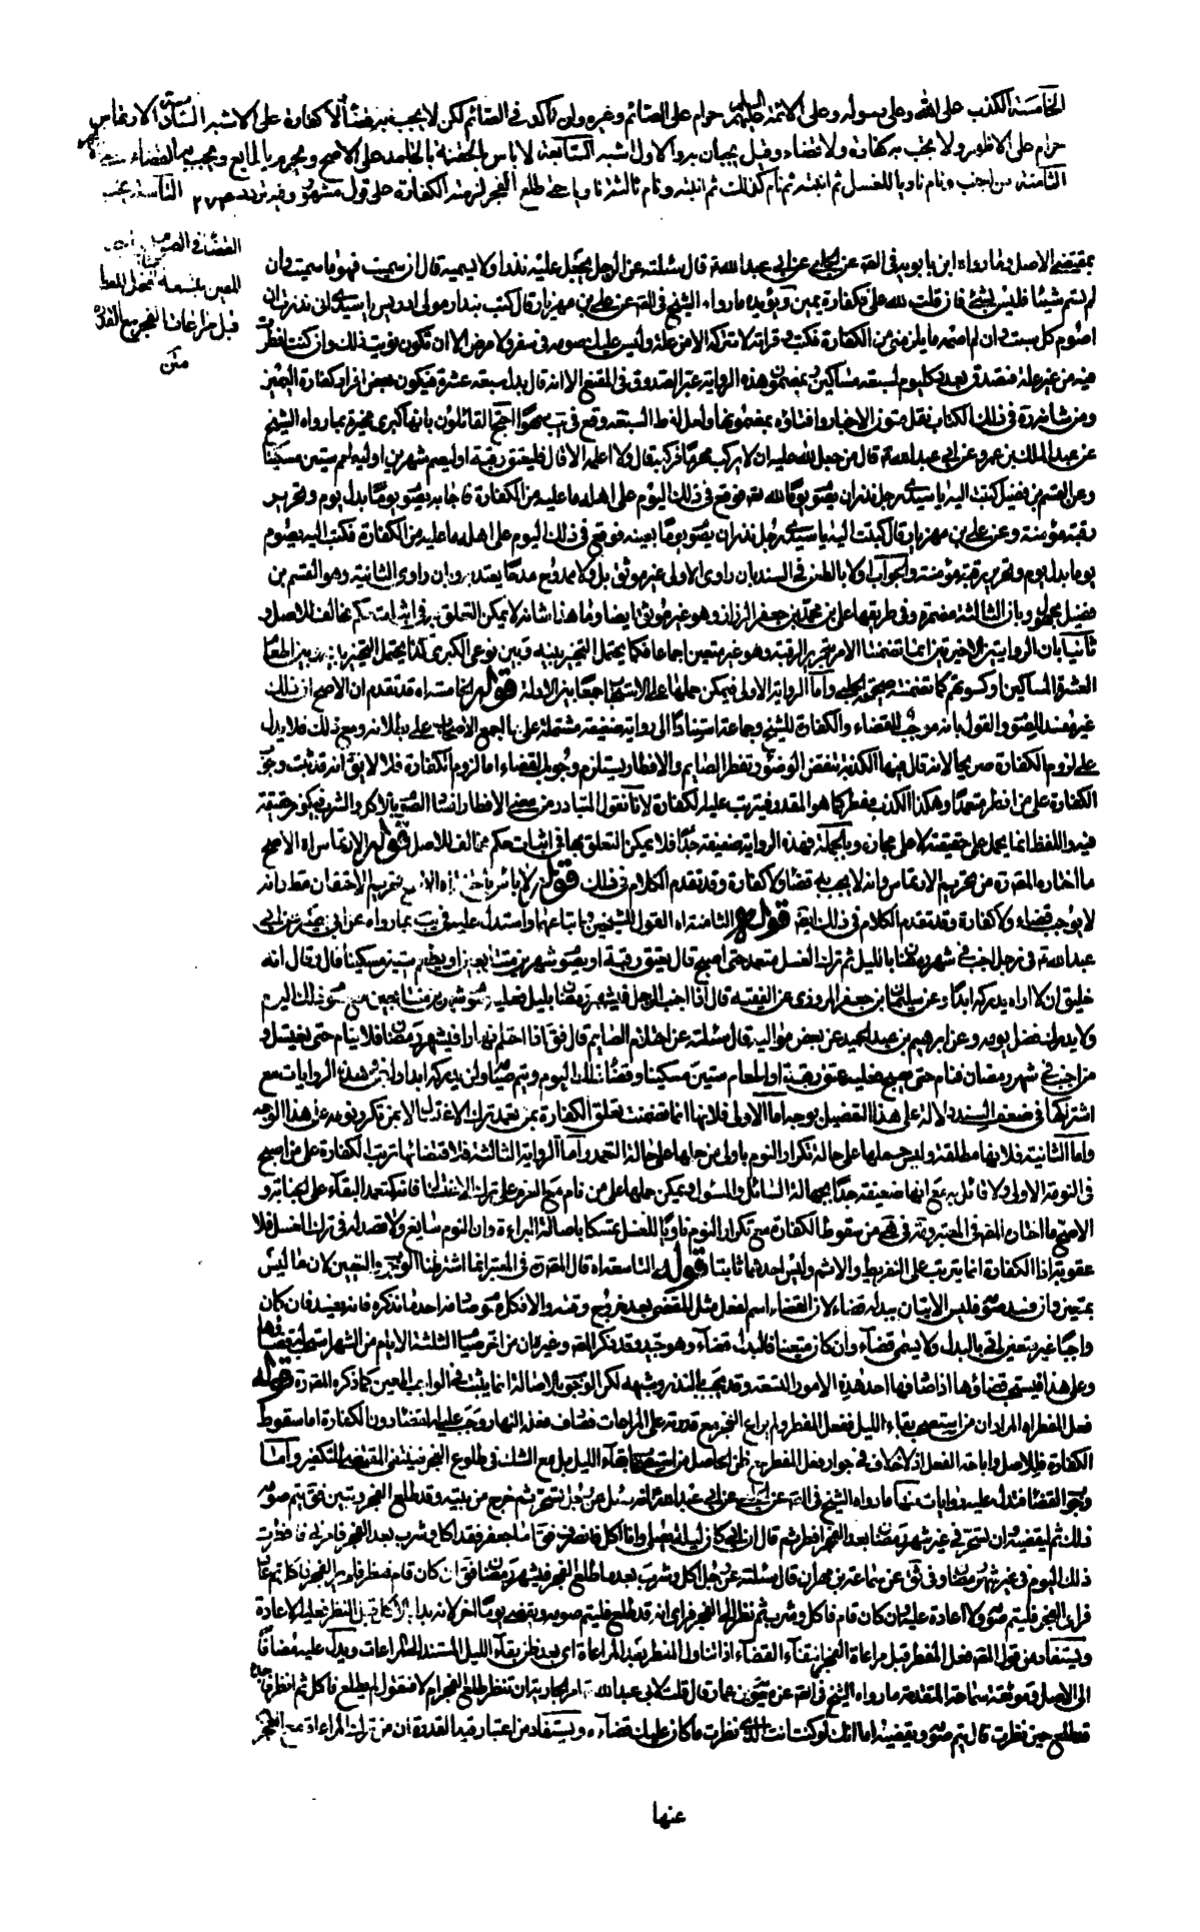 الخامسة الكذب على الله وعلى رسوله وعلى الائمة عليهم السلم حرام على الصائم وغيره وان تأكد في الصائم لكن لا يجب به قضاء ولا كفارة على الاشبه السادسة الارتماس
حرام على الاظهر ولا يجب به كفارة ولا قضاء وقيل يجبان به والاول اشبه السابعة لا باس بالحقنة بالجامد على الاصح ويحرم بالمايع ويجب به القضاء
الثامنة من اجنب ونام ناويا للغسل ثم انتبه ثم نام كذلك ثم انتبه ونام ثالثة ناويا حتى طلع الفجر لزمته الكفارة على قول مشهور وفيه تردد التاسعة يجب
القضاء في الصوم
المعين بتسعة فعل المفطر
قبل مراعات الفجر مع القدرة
متن
بمقتضى الاصل وما رواه ابن بابويه في عن الحلبي عن ابي عبد الله قال سئلته عن الرجل يجعل عليه نذرا ولا يسميه قال ان سميت فهو ما سميت وان
لم تسم شيئا فليس بشئ فان قلت لله على فكفارة يمين ويؤيده ما رواه الشيخ في عن علي بن مهزيار قال كتب بندار مولى ادريس يا سيدي اني نذرت ان
اصوم كل سبت وان لم اصمه ما يلزمني من الكفارة فكتب وقراته لا تتركه الا من علة وليس عليك صومه في سفر ولا مرض الا ان تكون نويت ذلك وان كنت افطرت
فيه من غير علة فتصدق بعدد كل يوم لسبعة مساكين وبمضمون هذه الرواية عبر الصدوق في المقنع الا انه قال بدل سبعة عشرة فيكون بعض افراد كفارة اليمين
ومن شانه في ذلك الكتاب نقل متون الاخبار وافتاؤه بمضمونها ولعل لفظ السبعة وقع في سهوا احتج القائلون بانها كبرى مخيرة بما رواه الشيخ
عن عبد الملك بن عمرو عن ابي عبد الله قال من جعل لله عليه ان لا يركب محرما فركبه قال ولا اعلمه الا قال فليعتق رقبة او ليصم شهرين او ليطعم ستين مسكينا
وعن القسم بن فضيل كتبت اليه يا سيدي رجل نذر ان يصوم يوما لله فوقع في ذلك اليوم على اهله ما عليه من الكفارة فاجابه يصوم يوما بدل يوم وتحرير
رقبة مؤمنة وعن علي بن مهزيار قال كتبت اليه يا سيدي رجل نذر ان يصوم يوما بعينه فوقع في ذلك اليوم على اهله ما عليه من الكفارة فكتب اليه يصوم
يوما بدل يوم وتحرير رقبة مؤمنة والجواب اولا بالطعن في السند بان راوي الاولى غير موثق بل ولا ممدوح مدحا يعتد به وان راوي الثانية وهو القسم بن
فضيل مجهول وبان الثالثة مضمرة وفي طريقها علي بن محمد بن جعفر الرزاز وهو غير موثق ايضا وما هذا شانه لا يمكن التعلق به في اثبات حكم مخالف للاصل و
ثانيا بان الروايتين الاخيرتين انما تضمنتا الامر بتحرير الرقبة وهو غير متعين اجماعا فكما يحتمل التخيير بينه وبين نوعي الكبرى كذا يحتمل التخيير بينه وبين اطعام
العشرة المساكين او كسوتهم كما تضمنته صحيحة الحلبي واما الرواية الاولى فيمكن حملها على الاستحباب جمعا بين الادلة قوله الخامسة اه قد تقدم ان الاصح ان ذلك
غير مفسد للصوم والقول بانه موجب للقضاء والكفارة للشيخ وجماعة استنادا الى رواية ضعيفة مشتملة على ما اجمع الاصحاب على بطلانه ومع ذلك فلا يدل
على لزوم الكفارة صريحا لانه قال فيها الكذبة تنقض الوضوء وتفطر الصايم والافطار يستلزم وجوب القضاء اما لزوم الكفارة فلا لا يق انه قد ثبت وجوب
الكفارة على من افطر متعمدا وهكذا الكذب مفطر كما هو المقدر فيترتب عليه الكفارة لانا نقول المتبادر من معنى الافطار افساد الصوم بالاكل والشرب فيكون حقيقة
فيه واللفظ انما يحمل على حقيقته لا على مجازه وبالجملة فهذه الرواية ضعيفة جدا فلا يمكن التعلق بها في اثبات حكم مخالف للاصل قوله الارتماس اه الاصح
ما اختاره المص من تحريم الارتماس وانه لا يجب به قضاء ولا كفارة وقد تقدم الكلام في ذلك قوله لا باس اه الاصح تحريم الاحتقان مطلقا وانه
لا يوجب قضاء ولا كفارة وقد تقدم الكلام في ذلك ايضا قوله الثامنة اه القول للشيخين واتباعهما واستدل عليه في يب بما رواه عن ابي بصير عن ابي
عبد الله في رجل اجنب في شهر رمضان بالليل ثم ترك الغسل متعمدا حتى اصبح قال يعتق رقبة او يصوم شهرين متتابعين او يطعم ستين مسكينا قال وقال انه
خليق ان لا اراه يدركه ابدا وعن سليمان بن جعفر المروزي عن الفقيه قال اذا اجنب الرجل في شهر رمضان بليل فعليه صوم شهرين متتابعين مع صوم ذلك اليوم
ولا يدرك فضل يومه وعن ابرهيم بن عبد الحميد عن بعض مواليه قال سئلته عن احتلام الصايم قال فق اذا احتلم نهارا في شهر رمضان فلا ينام حتى يغتسل و
من اجنب في شهر رمضان فنام حتى يصبح فعليه عتق رقبة او اطعام ستين مسكينا وقضاء ذلك اليوم ويتم صيامه ولن يدركه ابدا وليس هذه الروايات مع
اشتراكها في ضعف السند دلالة على هذا التفصيل بوجه اما الاولى فلانها انما تضمنت تعلق الكفارة بمن تعمد ترك الاغتسال لا بمن تكرر نومه على هذا الوجه
واما الثانية فلانها مطلقة وليس حملها على حالة تكرار النوم باولى من حملها على حالة التعمد واما الرواية الثالثة فلاقتضائها ترتب الكفارة على من اصبح
في النومة الاولى ولا قائل به مع انها ضعيفة جدا بجهالة السائل والمسئول ويمكن حملها على من نام مع العزم على ترك الاغتسال فانه كتعمد البقاء على الجنابة و
الاصح ما اختاره المص في المعتبر وغيره من سقوط الكفارة مع تكرار النوم ناويا للغسل تمسكا باصالة البراءة وان النوم سايغ ولا قصد له في ترك الغسل فلا
عقوبة اذ الكفارة انما يترتب على التفريط والاثم وليس احدهما ثابتا قوله التاسعة اه قال المص في المعتبر انما اشترطنا الوجوب والتعيين لان ما ليس
بمتعين وان فسد صومه فليس الاتيان ببدله قضاء لان القضاء اسم لفعل مثل المقضي بعد خروج وقته والا فكل صوم صادفه احد ما نذكره فانه يفسد فان كان
واجبا غير متعين اتى بالبدل ولا يسمى قضاء وان كان متعينا فالبدل قضاء وهو جيد وقد ذكر المص وغيره ان من اخر صيام الثلثة الايام من الشهر استحب له قضاؤها
وعلى هذا فيستحب قضاؤها اذا صادفها احد هذه الامور التسعة وقد يجب بالنذر وشبهه لكن الوجوب بالاصالة انما يثبت في الواجب المعين كما ذكره المص قوله
فعل المفطر اه المراد ان من استصحب بقاء الليل ففعل المفطر ولم يراع الفجر مع قدرته على المراعات فصادف فعله النهار وجب عليه القضاء دون الكفارة اما سقوط
الكفارة فللاصل واباحة الفعل اذ لا خلاف في جواز فعل المفطر مع ظن الحاصل من استصحاب بقاء الليل بل مع الشك في طلوع الفجر فينتفي المقتضي للتكفير واما
وجوب القضاء فتدل عليه روايات منها ما رواه الشيخ في عن الحلبي عن ابي عبد الله انه سئل عن رجل تسحر ثم خرج من بيته وقد طلع الفجر وتبين فق يتم صومه
ذلك ثم ليقضه وان تسحر في غير شهر رمضان بعد الفجر افطر ثم قال ان ابي كان ليلة يصلي وانا اكل فانصرف فق اما جعفر فقد اكل وشرب بعد الفجر فامرني فافطرت
ذلك اليوم في غير شهر رمضان وفي ثق عن سماعة بن مهران قال سئلته عن رجل اكل وشرب بعد ما طلع الفجر في شهر رمضان فق ان كان قام فنظر فلم ير الفجر فاكل ثم عاد
فراى الفجر فليتم صومه ولا اعادة عليه وان كان قام فاكل وشرب ثم نظر الى الفجر فراى انه قد طلع فليتم صومه ويقضي يوما اخر لانه بدا بالاكل قبل النظر فعليه الاعادة
ويستفاد من قول المص فعل المفطر قبل مراعاة الفجر انتفاء القضاء اذا تناول المفطر بعد المراعاة اي بعد ظن بقاء الليل المستند الى المراعات ويدل عليه مضافا
الى الاصل وموثقة سماعة المتقدمة ما رواه الشيخ في عن معوية بن عمار قال قلت لابي عبد الله امر الجارية ان تنظر طلع الفجر ام لا فتقول لم يطلع فاكل ثم انظر فاجده
قد طلع حين نظرت قال يتم صومه ويقضيه اما انك لو كنت انت الذي نظرت ما كان عليك قضاء ويستفاد من اعتبار قيد القدرة ان من ترك المراعاة مع العجز
عنها